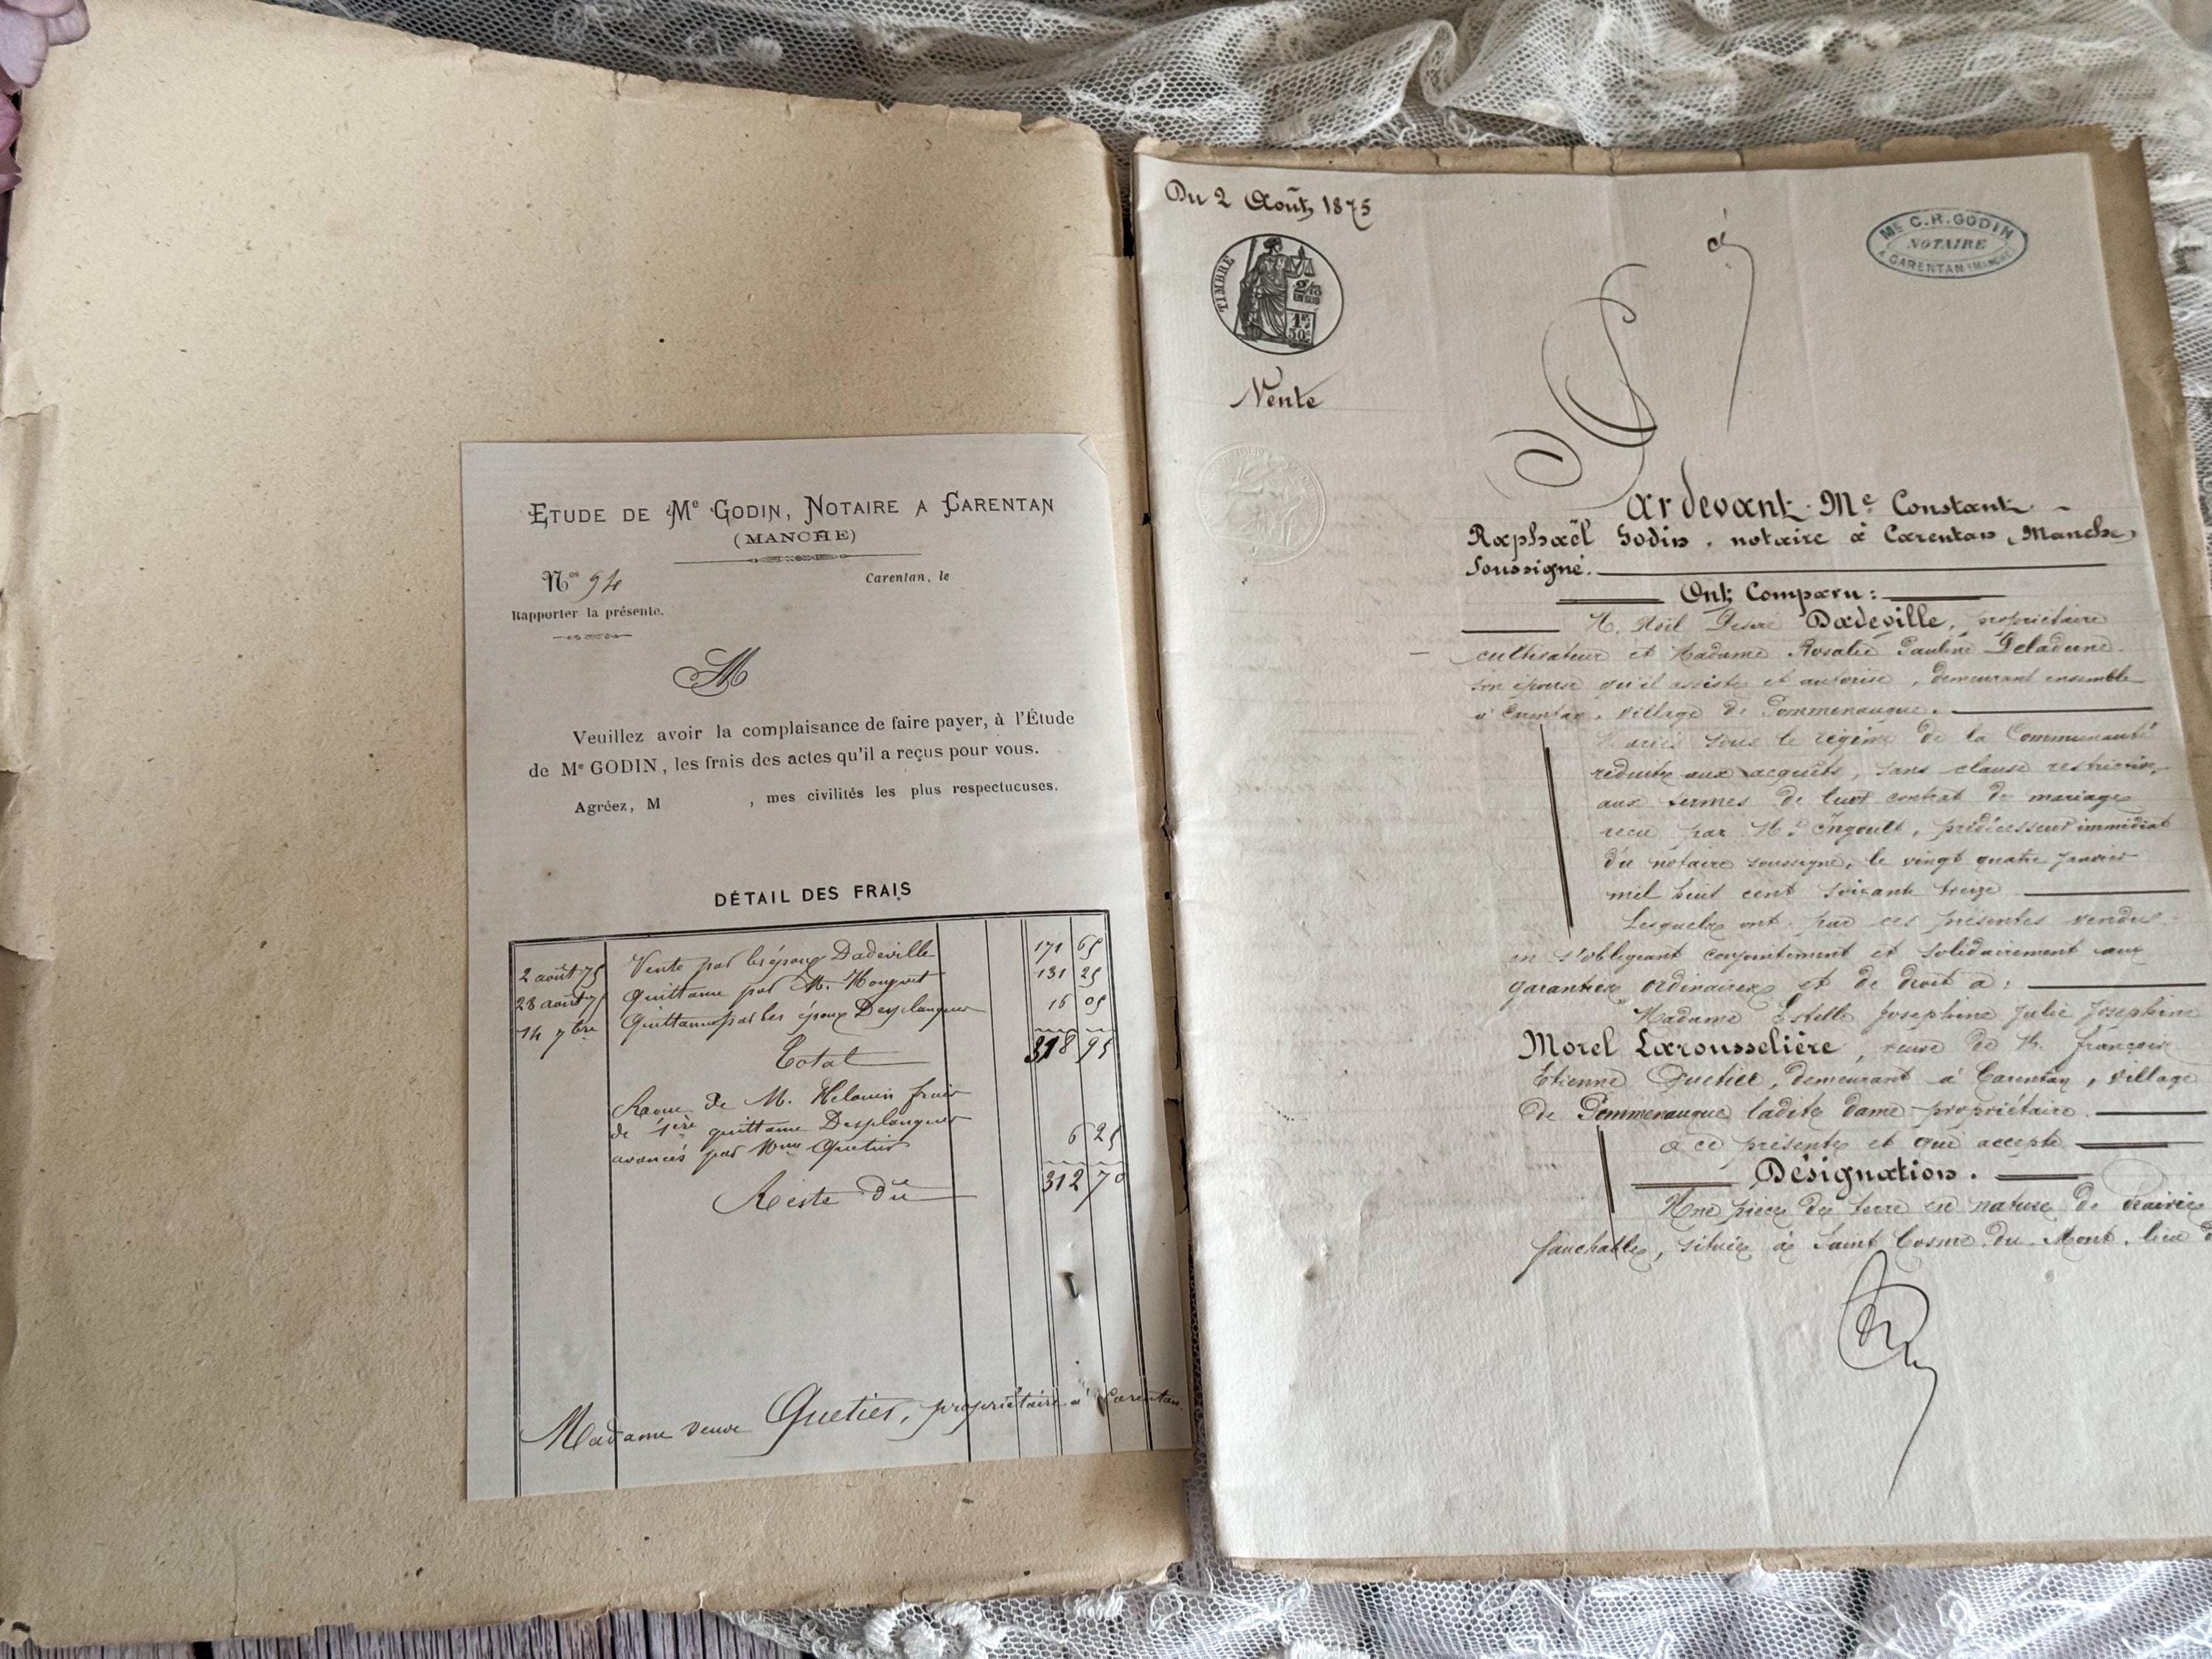 ETUDE DE Me GODIN, NOTAIRE A CARENTAN
(MANCHE)
Nos 94
Carentan, le
Rapporter la présente.
M
Veuillez avoir la complaisance de faire payer, à l'Étude
de Me GODIN, les frais des actes qu'il a reçus pour vous.
Agréez, M , mes civilités les plus respectueuses.
DÉTAIL DES FRAIS
2 août 75 Vente par les époux Dadeville 171 65
28 août 75 Quittance par M. 131 25
14 7bre Quittance par les époux Desplanques 16 05
Total 318 95
de M. Helouin frais
de 1ère quittance Desplanques
avancés par Mme Quetier 6 25
Reste dû 312 70
Madame veuve Quetier, propriétaire à Carentan.
Du 2 Août 1875
TIMBRE
2/10
EN SUS
1F
50c
ME C.R. GODIN
NOTAIRE
A CARENTAN (MANCHE)
Vente
Pardevant Me Constant
Raphaël Godin, notaire à Carentan, Manche,
Soussigné.
Ont Comparu:
M. Noël Désiré Dadeville, propriétaire
cultivateur et Madame Rosalie Pauline Deladune
son épouse qu'il assiste et autorise, demeurant ensemble
à Carentan, village de Pommenauque.
Mariés sous le régime de la Communauté
réduite aux acquêts, sans clause restrictive,
aux termes de leur contrat de mariage
reçu par Me Ingoult, prédécesseur immédiat
du notaire soussigné, le vingt quatre janvier
mil huit cent soixante treize
Lesquels ont par ces présentes vendu
en s'obligeant conjointement et solidairement aux
garanties ordinaires et de droit à:
Madame Estelle Josephine Julie Josephine
Morel Larousselière, veuve de M. françois
Etienne Quetier, demeurant à Carentan, village
de Pommenauque ladite dame propriétaire.
à ce présente et qui accepte
Désignation.
Une pièce de terre en nature de prairie
fauchable, située à Saint Cosme du Mont, lieu d